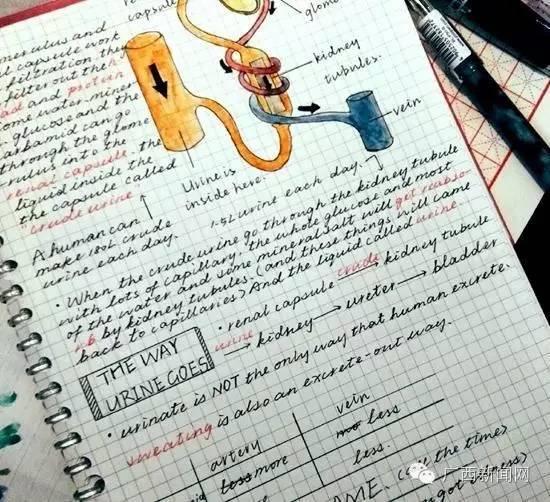 capsule
glome
kidney
tubules.
vein
Urine is
inside here.
merulus and
capsule work
filtration, they
filter out the
and protein
some water, miner
glucose and the
carbamid can go
through the glome
rulus into the
renal capsule, the
liquid inside the
the capsule called
"crude urine"
A human can
make 180L crude
urine each day.
1.5L urine each day.
· When the crude urine go through the kidney tubule
with lots of capillary, the whole glucose and most
of the water and some mineral salt will get reabso-
rb by kidney tubules. (and these things will came
back to capillaries) And the liquid called urine.
THE WAY
URINE GOES
· renal capsule crude kidney tubule
urine kidney ureter bladder
· urinate is NOT the only way that human excrete.
sweating is also an excrete-out way.
artery
vein
more
less
less.
(all the time)
广西新闻网